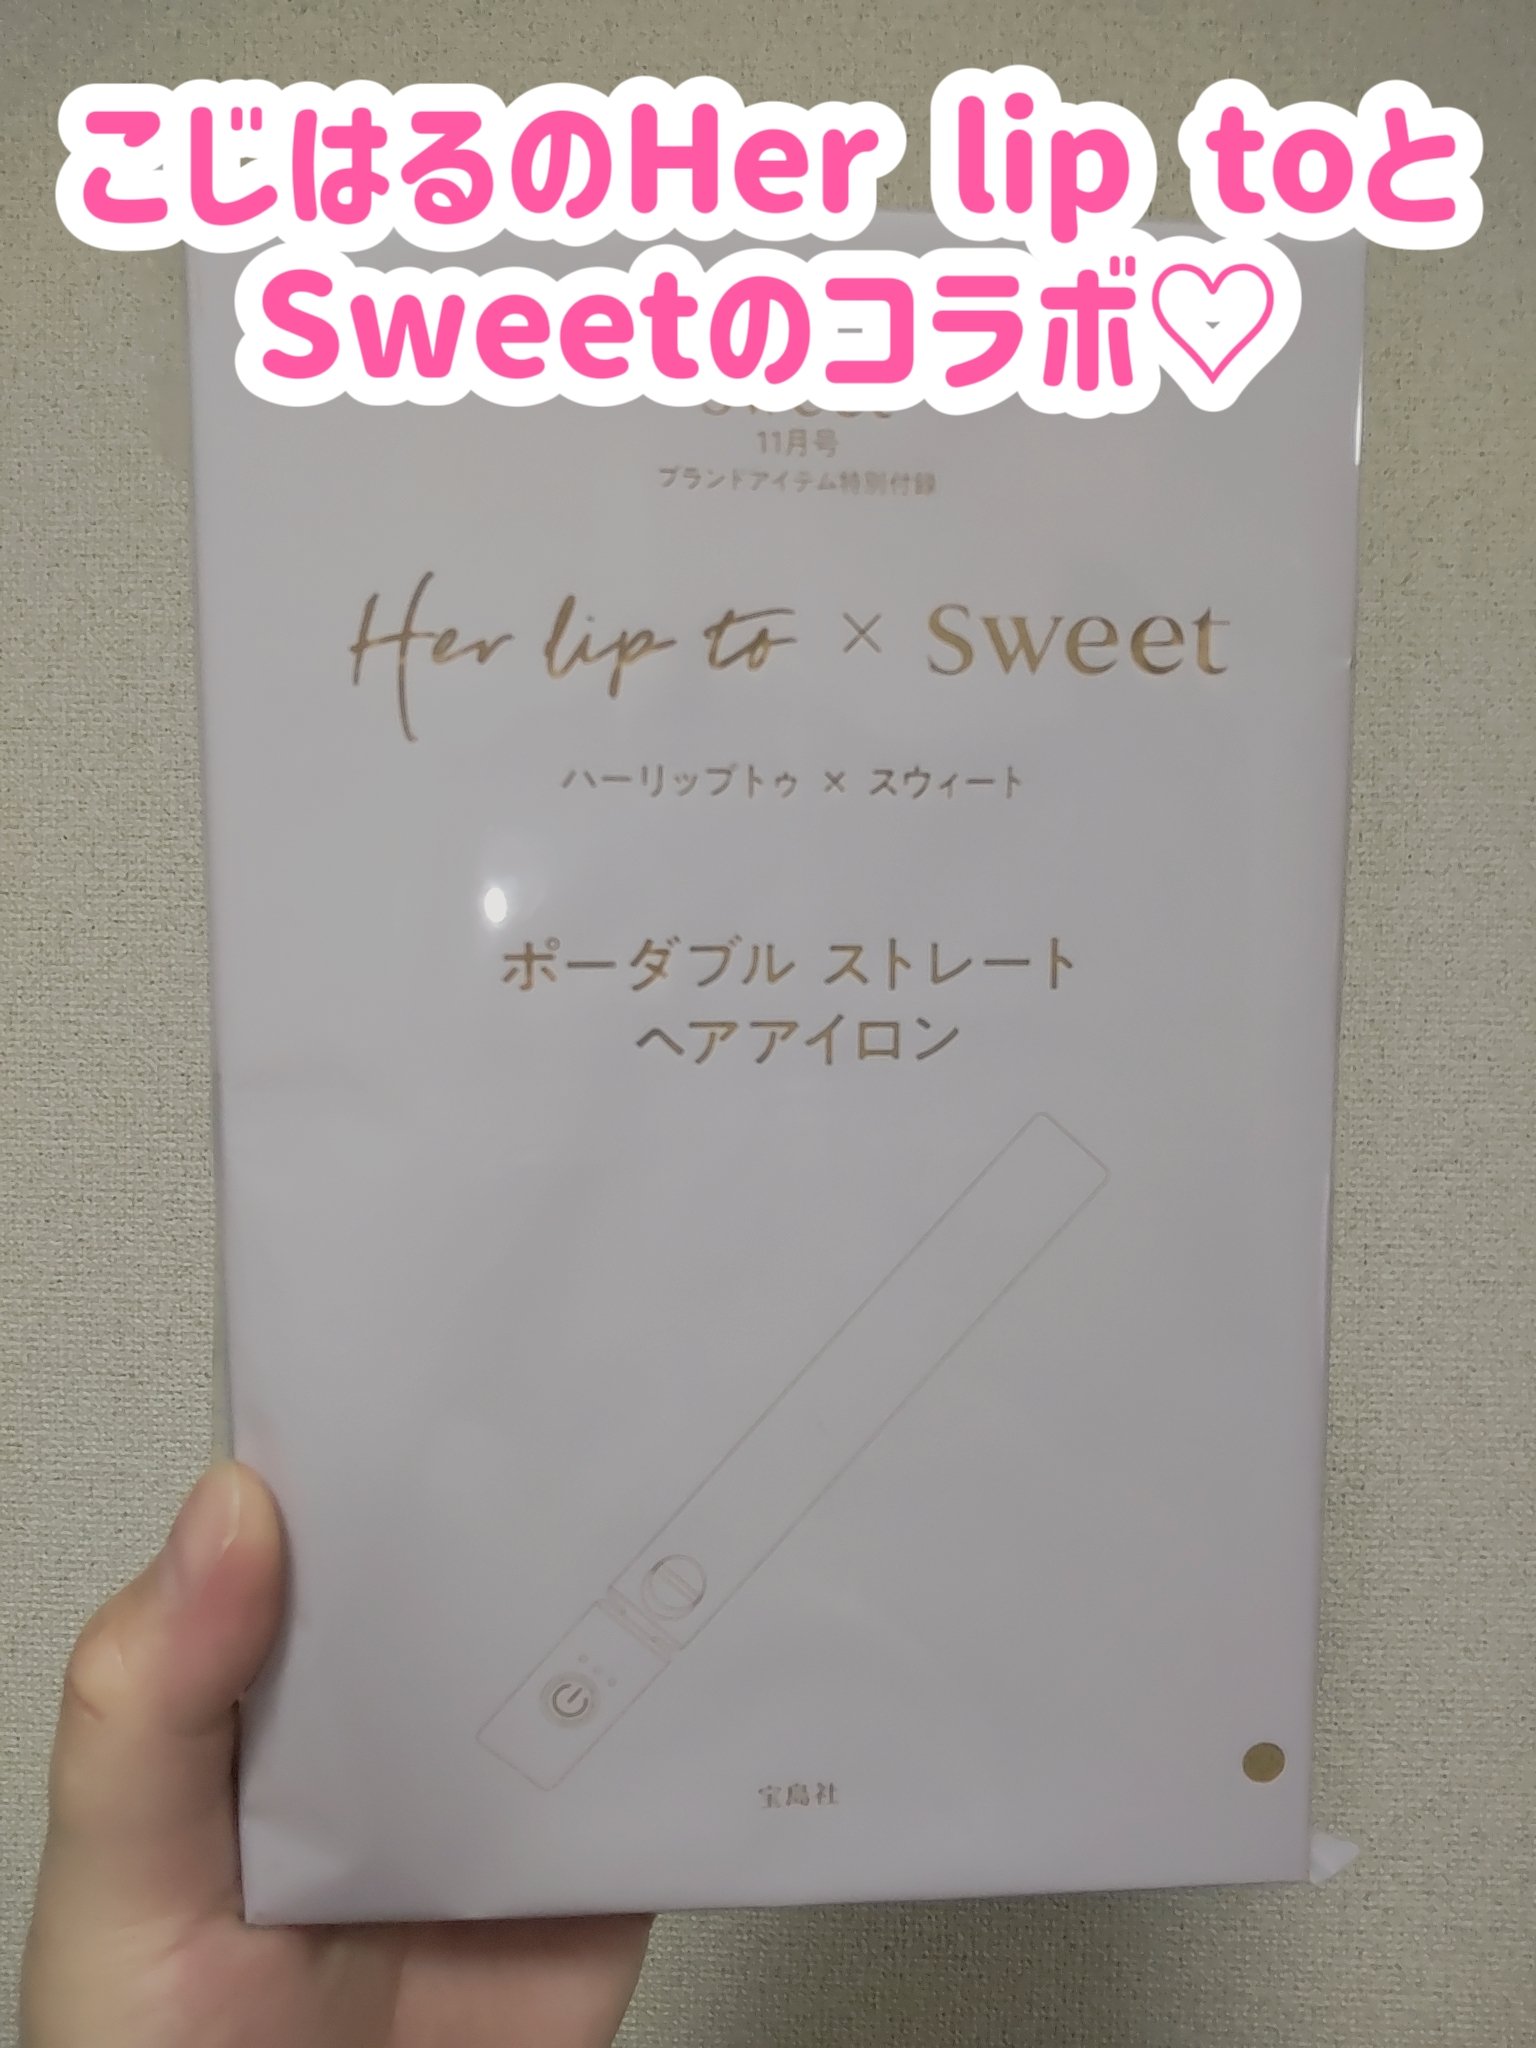 こじはるのHer lip toと
Sweetのコラボ♡
sweet
11月号
ブランドアイテム特別付録
Her lip to × sweet
ハーリップトゥ × スウィート
ポーダブル ストレート
ヘアアイロン
宝島社